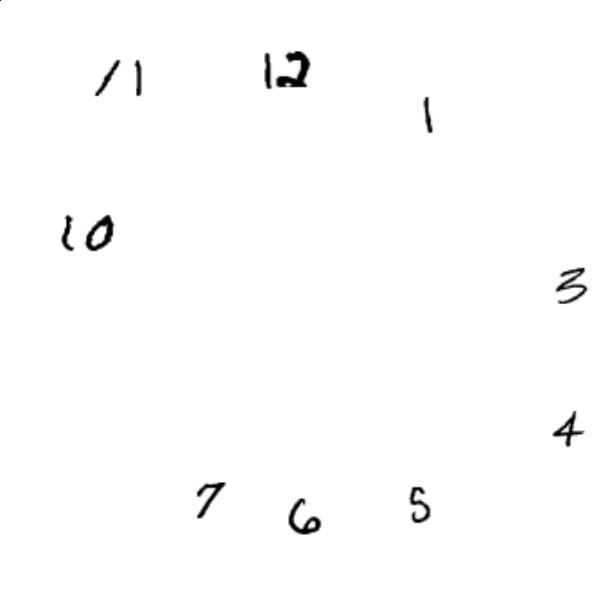 11 12
1
10
3
4
7 6 5